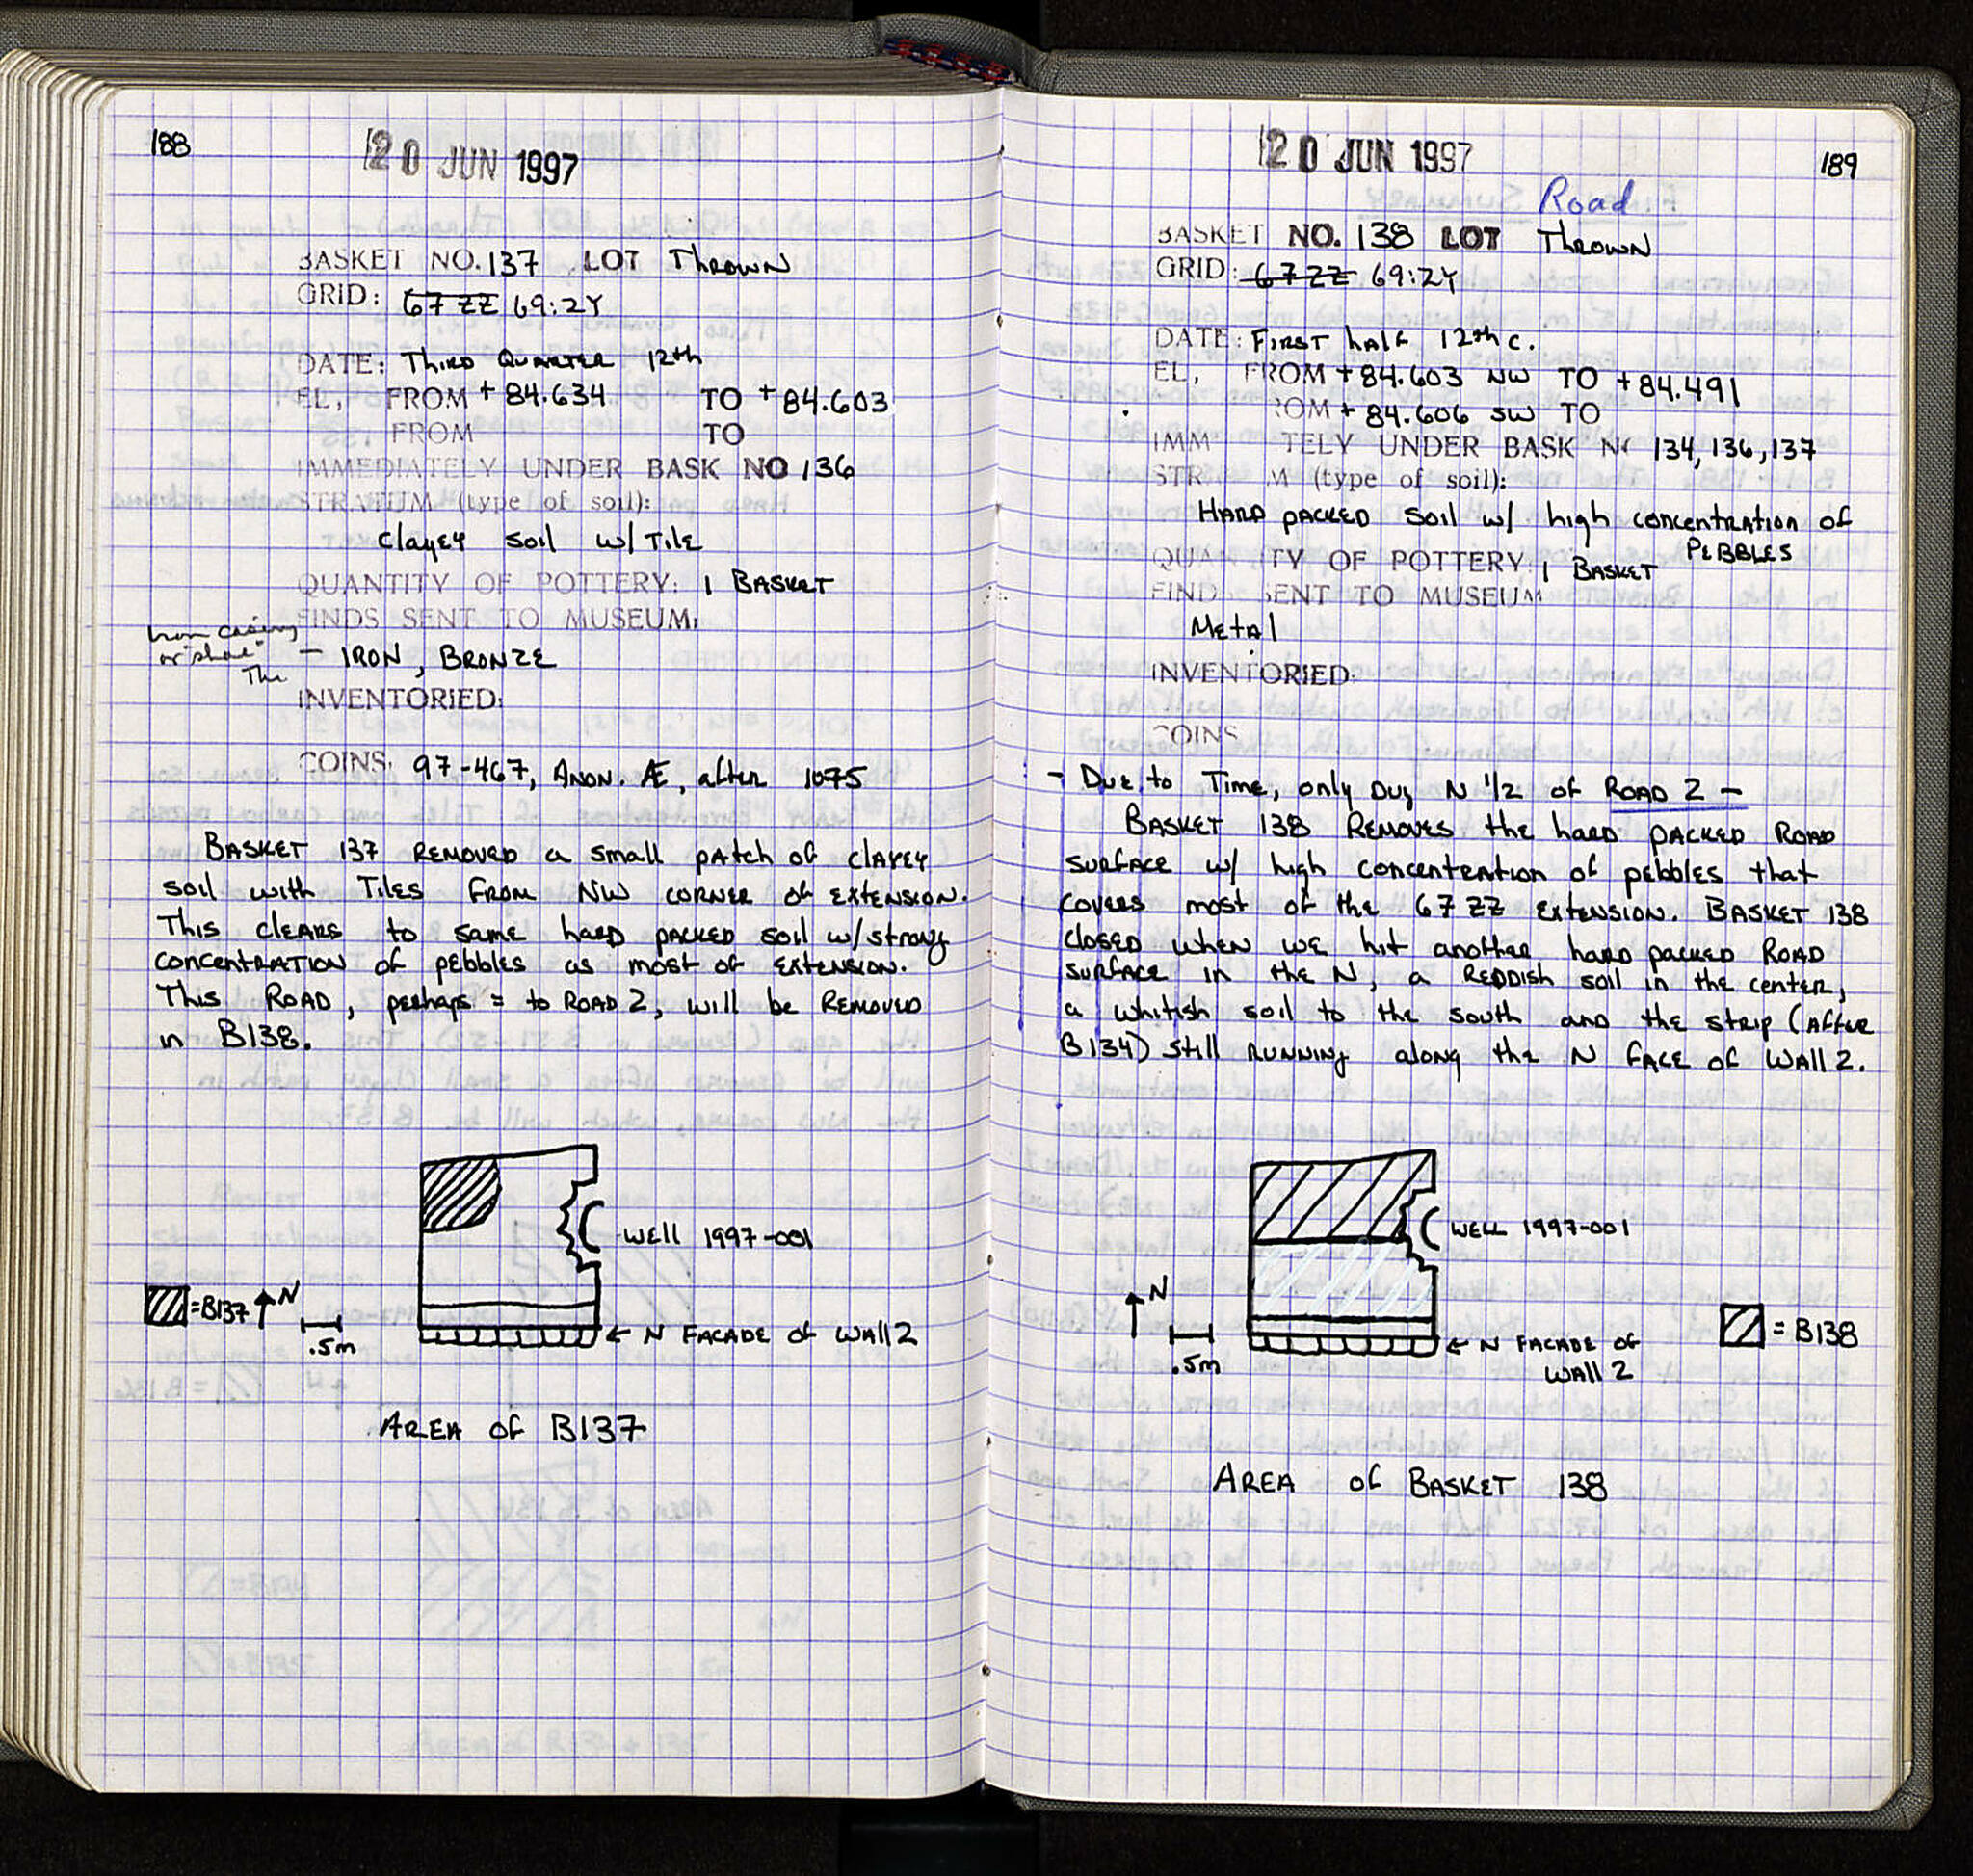 188
20 JUN 1997
BASKET NO. 137 LOT THROWN
GRID: 67 ZZ 69:2Y
DATE: THIRD QUARTER 12th
EL, FROM +84.634 TO +84.603
FROM TO
IMMEDIATELY UNDER BASK NO 136
STRATUM (type of soil):
clayey soil w/ TILE
QUANTITY OF POTTERY: 1 BASKET
FINDS SENT TO MUSEUM:
Iron casing
or "shoe" - IRON, BRONZE
INVENTORIED:
COINS: 97-467, ANON. Æ, after 1075
BASKET 137 REMOVED a small patch of clayey
soil with TILES FROM NW CORNER of EXTENSION.
This clears to same hard packed soil w/ strong
concentration of pebbles as most of EXTENSION.
This ROAD, perhaps = to ROAD 2, will be REMOVED
in B138.
WELL 1997-001
=B137 N
.5m
← N FACADE of WALL 2
AREA of B137
20 JUN 1997
189
Road
BASKET NO. 138 LOT THROWN
GRID: 67 ZZ 69:2Y
DATE: FIRST half 12th c.
EL, FROM +84.603 NW TO +84.491
ROM +84.606 SW TO
IMM TELY UNDER BASK N 134, 136, 137
STR M (type of soil):
HARD PACKED SOIL w/ high concentration of
PEBBLES
QUA ITY OF POTTERY: 1 BASKET
FIND SENT TO MUSEUM
Metal
INVENTORIED:
COINS
- Due to Time, only Dug N 1/2 of ROAD 2 -
BASKET 138 REMOVES the hard PACKED ROAD
surface w/ high concentration of pebbles that
covers most of the 67 ZZ EXTENSION. BASKET 138
closed when we hit another hard packed ROAD
surface in the N, a REDDISH soil in the center,
a whitish soil to the south and the strip (AFTER
B134) still RUNNING along the N FACE of WALL 2.
WELL 1997-001
N
.5m
← N FACADE of
WALL 2
= B138
AREA of BASKET 138